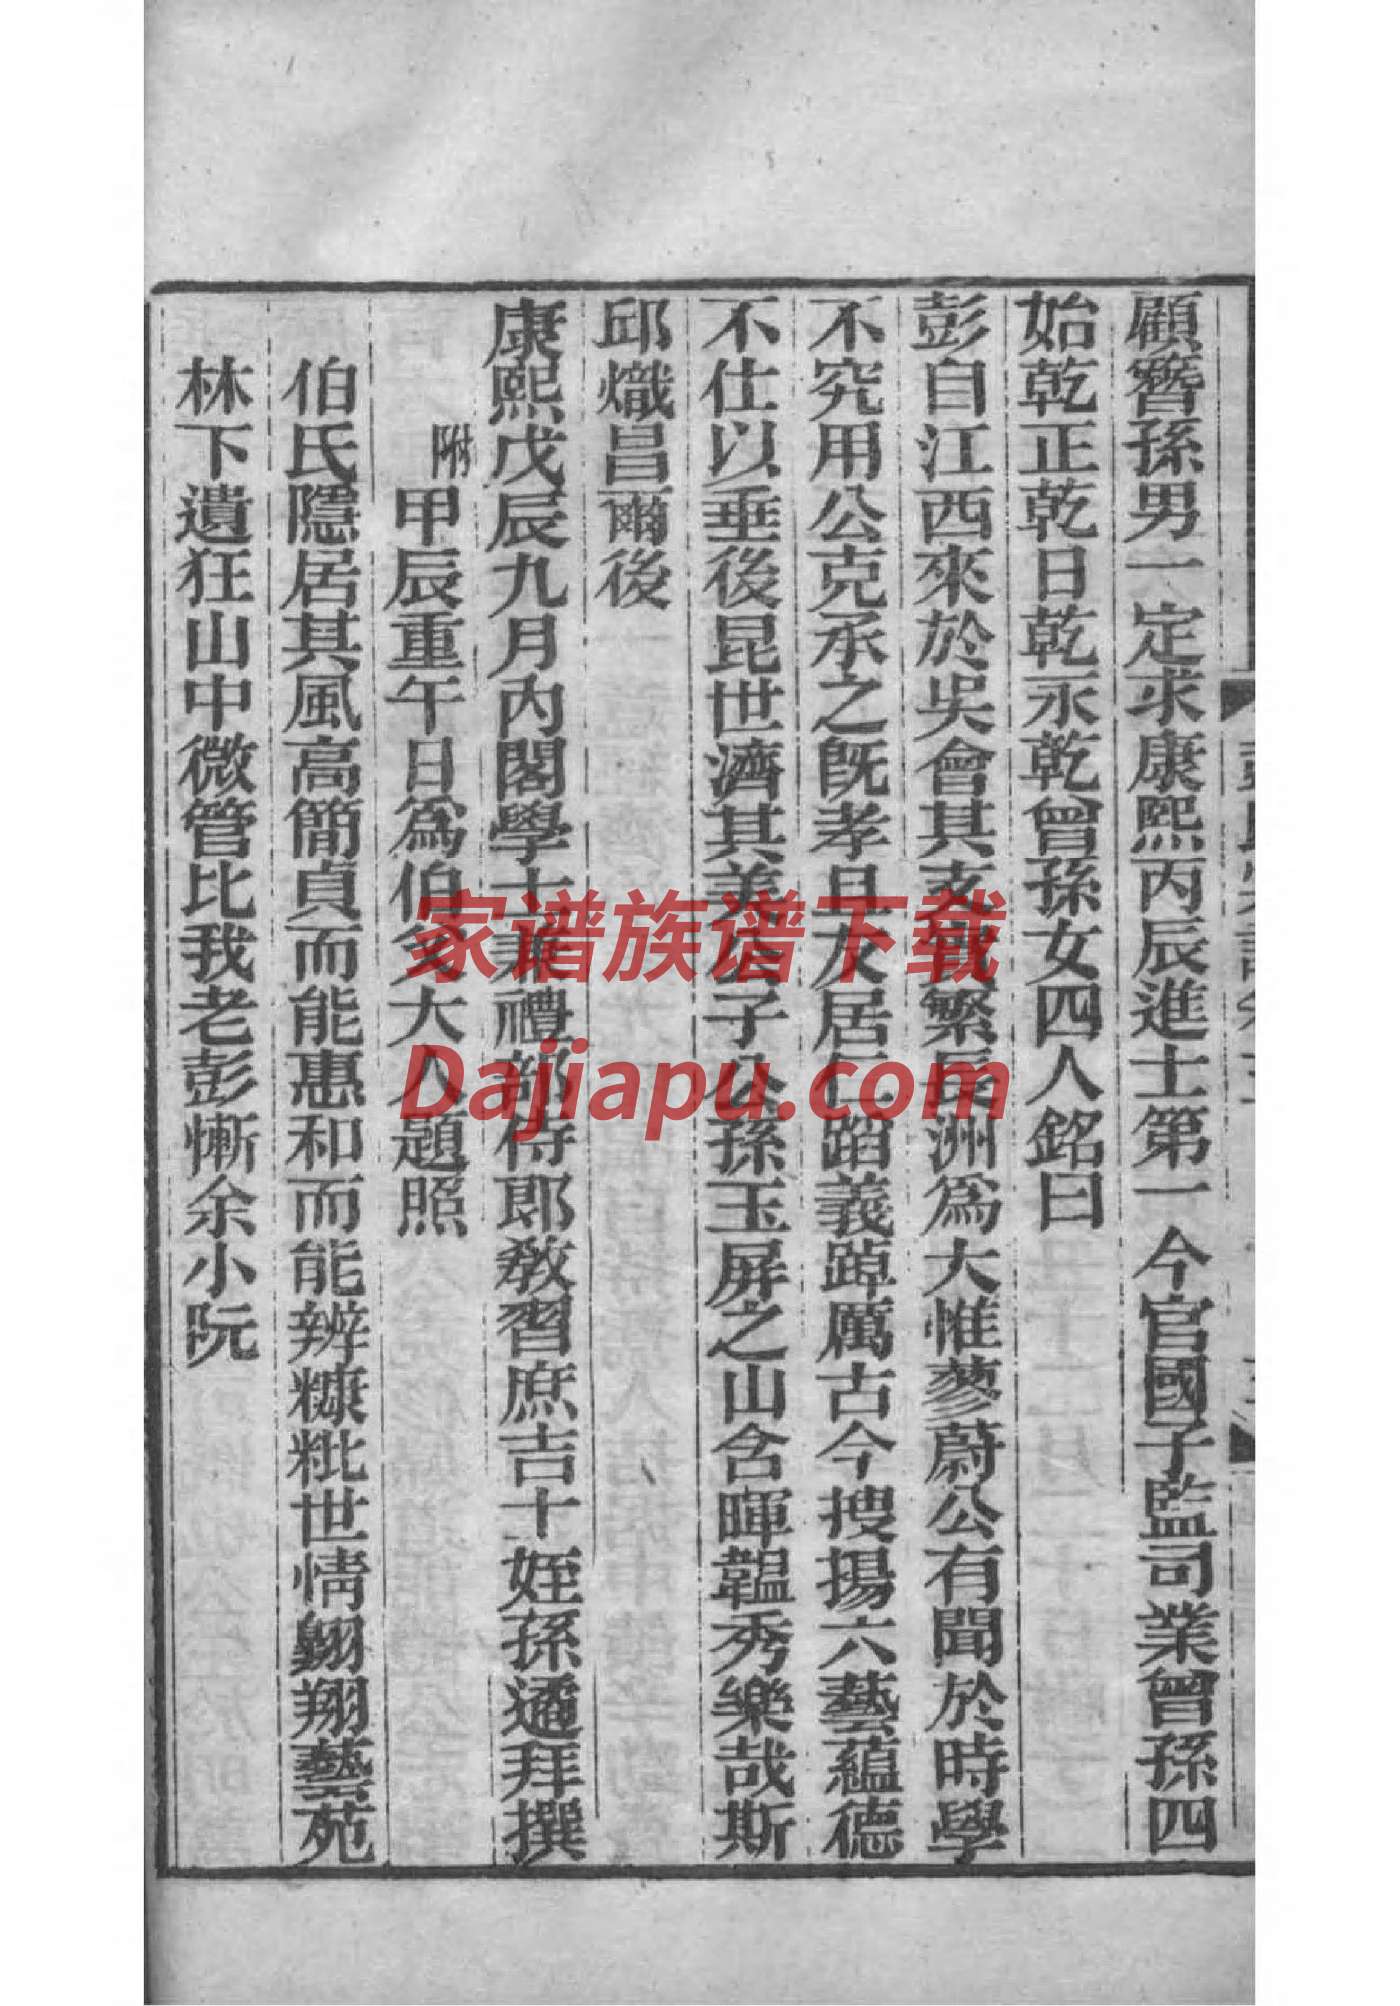 顧簪孫男一定求康熙丙辰進士第一今官國子監司業曾孫四
始乾正乾日乾永乾曾孫女四人銘曰
彭自江西來於吳會其支戩繁長洲爲大惟蓼蔚公有聞於時學
不究用公克承之旣孝且友居仁蹈義踔厲古今搜揚六藝蘊德
不仕以垂後昆世濟其美公子公孫玉屏之山含暉韞秀樂哉斯
邱熾昌爾後
康熙戊辰九月內閣學士兼禮部侍郎敎習庶吉士姪孫遹拜撰
附甲辰重午日爲伯父大人題照
伯氏隱居其風高簡貞而能惠和而能辨糠粃世情翱翔藝苑
林下遺狂山中微管比我老彭慚余小阮
家谱族谱下载
Dajiapu.com